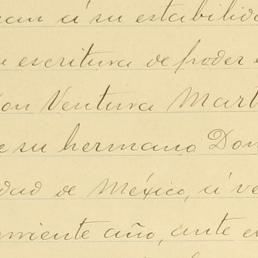 ran á su estabilida
escritura de poder
Don Ventura Mart
e su hermano Don
dad de México, á ve
rriente año, ante e